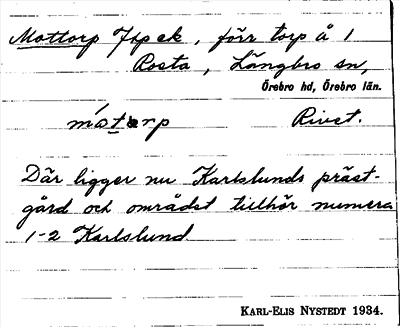 Mattorp Jfp ek, förr torp å 1
Rosta, Längbro sn,
Örebro hd, Örebro län.
måtǝrp Rivet.
Där ligger nu Karlslunds präst-
gård och området tillhör numera
1-2 Karlslund
KARL-ELIS NYSTEDT 1934.